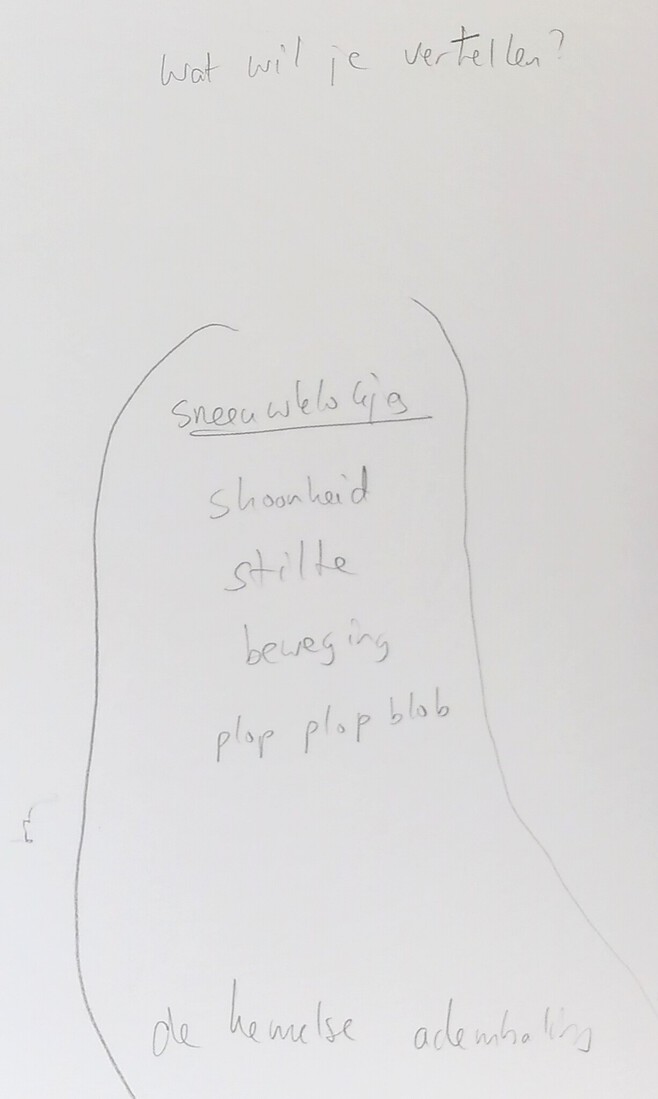 Wat wil je vertellen?
sneeuwklokjes
shoonheid
stilte
beweging
plop plop blob
de hemelse ademhaling